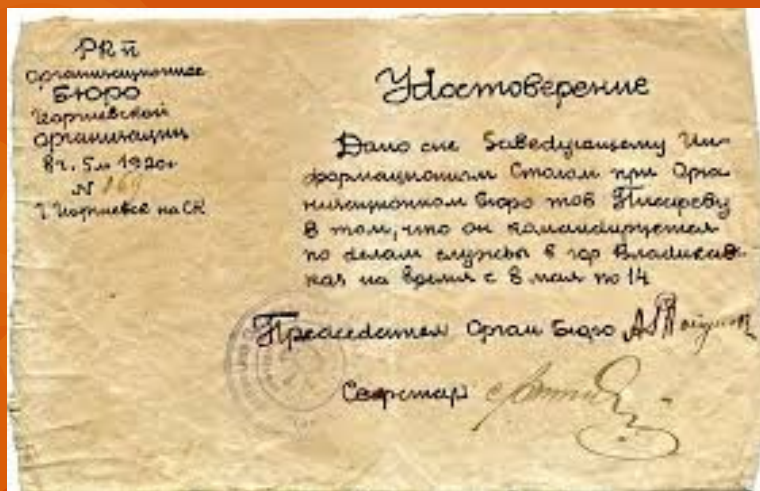 РКП
Организационное
Бюро
Георгиевской
организации
8ч. 5м 1920г
N 169
г. Георгиевск на СК
Удостоверение
Дано сие Заведующему Ин-
формационным Столом при Орга-
низационном Бюро тов Писареву
в том, что он командируется
по делам службы в гор Владикав-
каз на время с 8 мая по 14
Председател Орган Бюро
Секретар